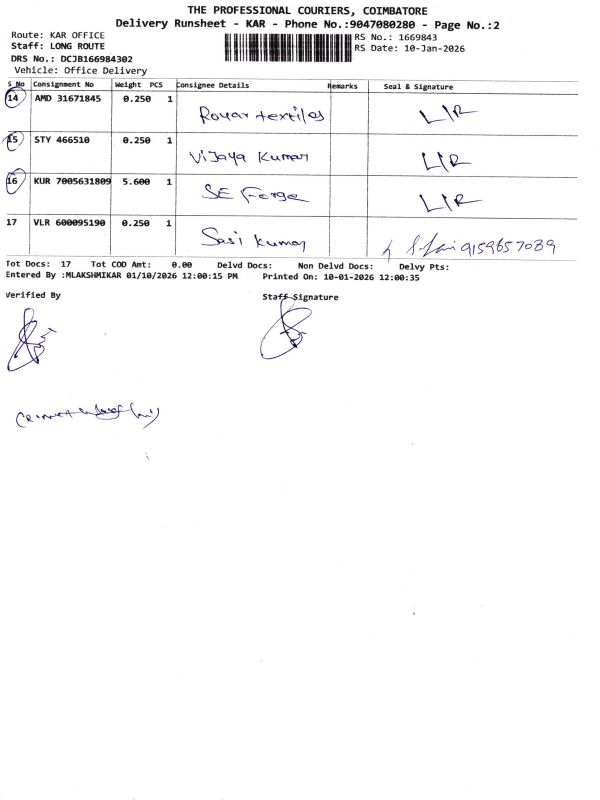 THE PROFESSIONAL COURIERS, COIMBATORE
Delivery Runsheet - KAR - Phone No.:9047080280 - Page No.:2
Route: KAR OFFICE
Staff: LONG ROUTE
DRS No.: DCJB166984302
Vehicle: Office Delivery
RS No.: 1669843
RS Date: 10-Jan-2026
S_No Consignment No Weight PCS Consignee Details Remarks Seal & Signature
14 AMD 31671845 0.250 1 textiles L/R
15 STY 466510 0.250 1 Vijaya Kumar L/R
16 KUR 7005631809 5.600 1 SE Forge L/R
17 VLR 600095190 0.250 1 Sasi Kumar 9159657089
Tot Docs: 17 Tot COD Amt: 0.00 Delvd Docs: Non Delvd Docs: Delvy Pts:
Entered By :MLAKSHMIKAR 01/10/2026 12:00:15 PM Printed On: 10-01-2026 12:00:35
Verified By Staff Signature